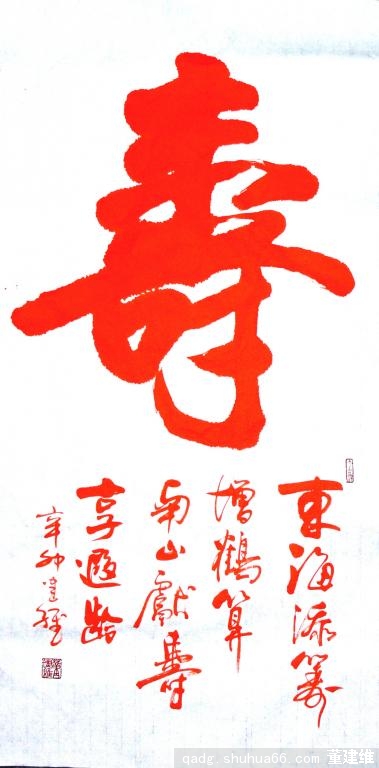 壽
東海添籌
增鶴算
南山獻壽
享遐齡
辛卯建維
qadg.shuhua66.com 董建维